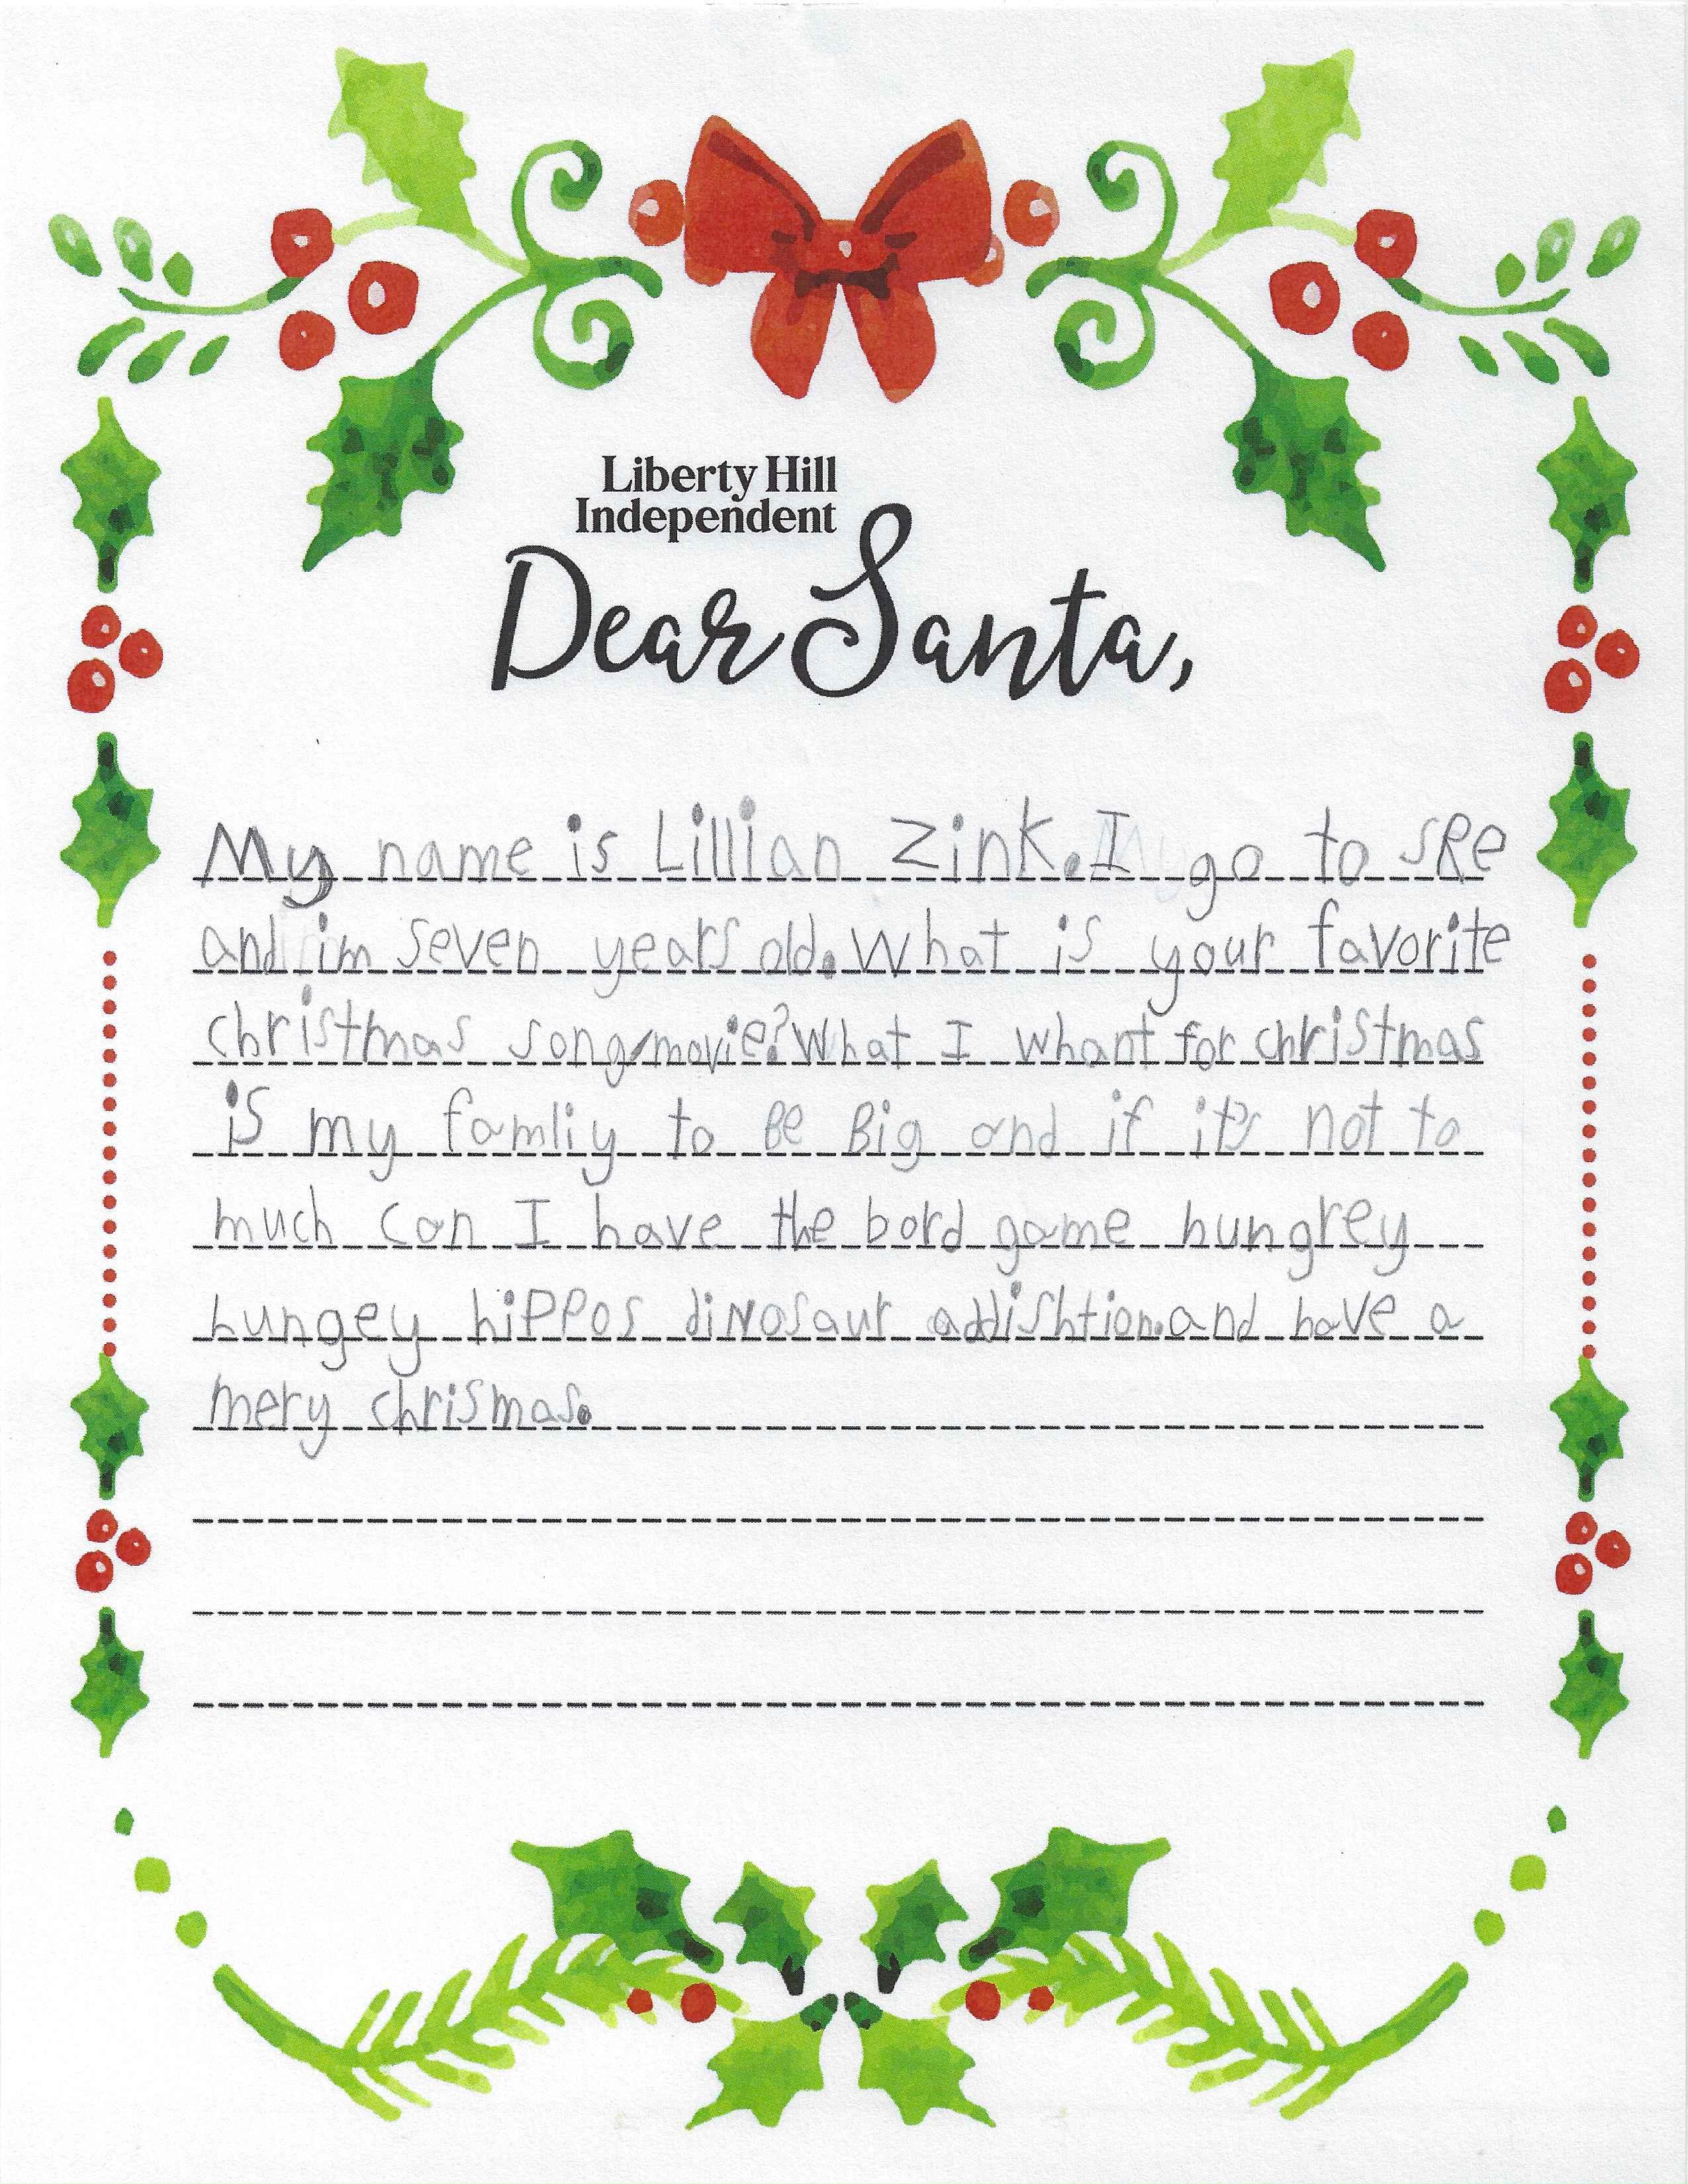 Liberty Hill
Independent
Dear Santa,
My name is Lillian Zink. I go to SRE
and im seven years old. What is your favorite
christmas song/movie? What I whant for christmas
is my famliy to Be Big and if it's not to
much can I have the bord game hungrey
hungey hiPPos diNosaur addishtion. and have a
mery chrismas.